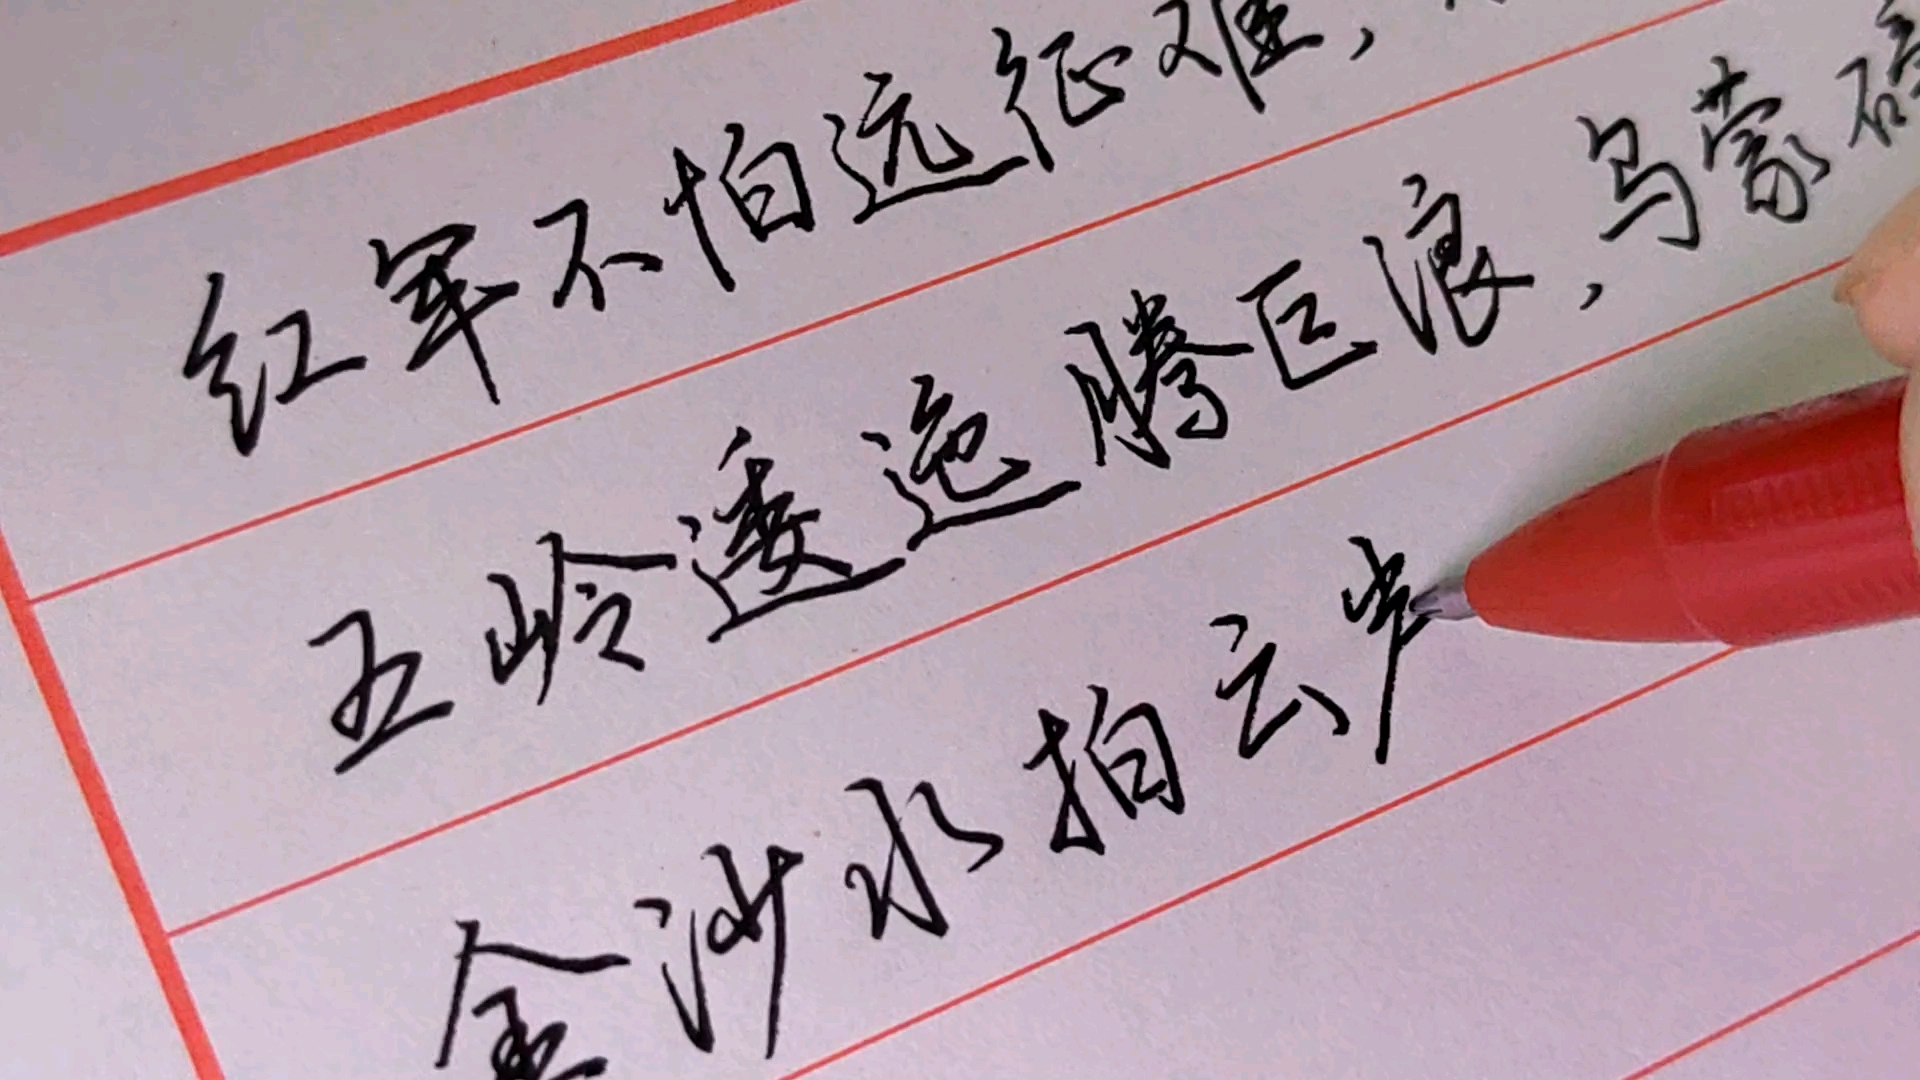 红军不怕远征难，
五岭逶迤腾巨浪，乌蒙磅
金沙水拍云